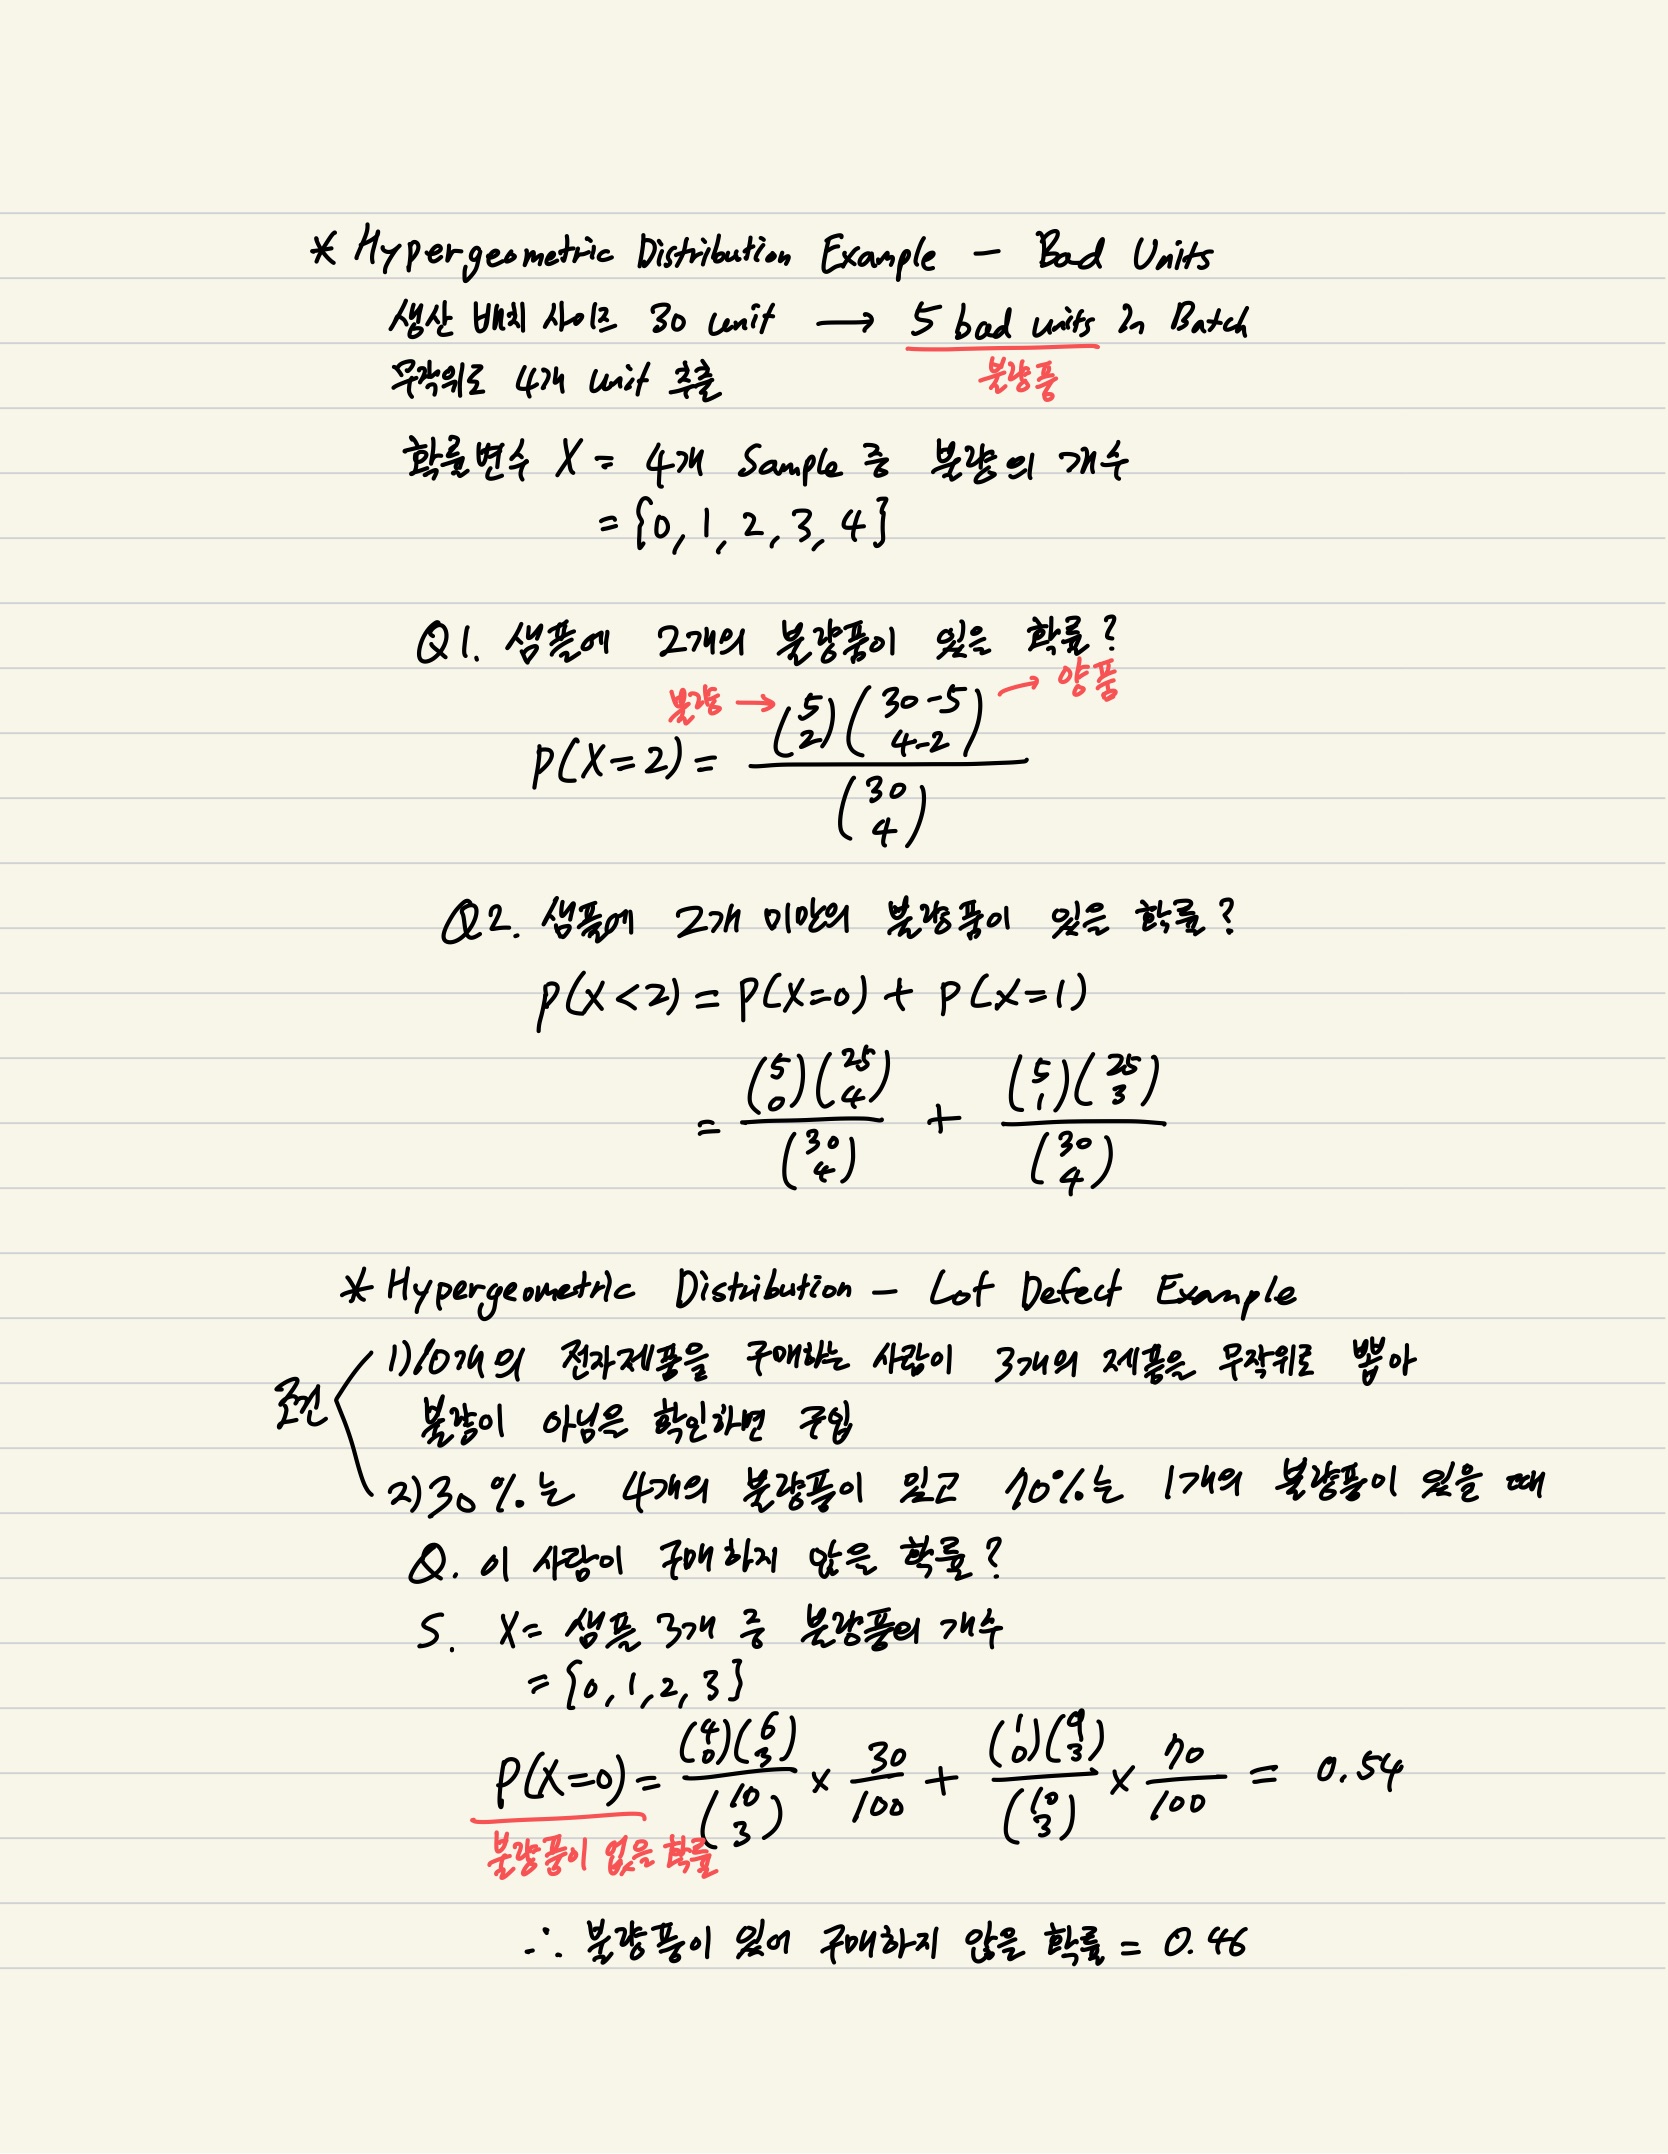 * Hypergeometric Distribution Example - Bad Units
생산 배치 사이즈 30 unit → 5 bad units in Batch
불량품
무작위로 4개 unit 추출
확률변수 X = 4개 Sample 중 불량의 개수
= {0, 1, 2, 3, 4}
Q1. 샘플에 2개의 불량품이 있을 확률?
불량 → → 양품
P(X=2) = \frac{\binom{5}{2}\binom{30-5}{4-2}}{\binom{30}{4}}
Q2. 샘플에 2개 미만의 불량품이 있을 확률?
P(X<2) = P(X=0) + P(X=1)
= \frac{\binom{5}{0}\binom{25}{4}}{\binom{30}{4}} + \frac{\binom{5}{1}\binom{25}{3}}{\binom{30}{4}}
* Hypergeometric Distribution - Lot Defect Example
조건
1) 10개의 전자제품을 구매하는 사람이 3개의 제품을 무작위로 뽑아
불량이 아님을 확인하면 구입
2) 30%는 4개의 불량품이 있고 70%는 1개의 불량품이 있을 때
Q. 이 사람이 구매하지 않을 확률?
S. X = 샘플 3개 중 불량품의 개수
= {0, 1, 2, 3}
P(X=0) = \frac{\binom{4}{0}\binom{6}{3}}{\binom{10}{3}} × \frac{30}{100} + \frac{\binom{1}{0}\binom{9}{3}}{\binom{10}{3}} × \frac{70}{100} = 0.54
불량품이 없을 확률
∴ 불량품이 있어 구매하지 않을 확률 = 0.46